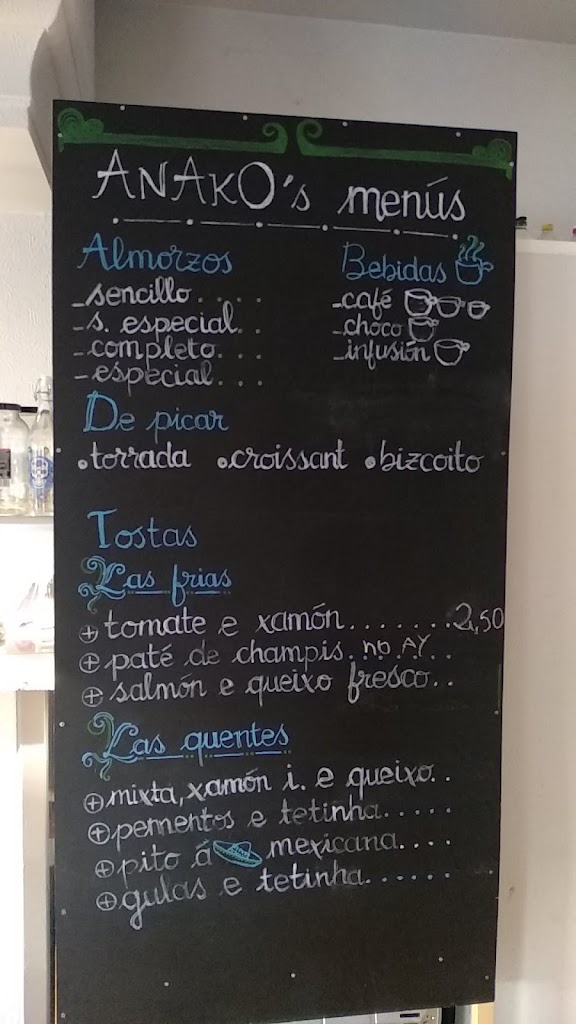 ANAKO's menús
Almorzos
-sencillo....
-s. especial...
-completo...
-especial...
Bebidas
-café
-choco
-infusión
De picar
•torrada •croissant •bizcoito
Tostas
Las frias
⊕ tomate e xamón.......2,50
⊕ paté de champis. no AY..
⊕ salmón e queixo fresco..
Las quentes
⊕ mixta, xamón i. e queixo..
⊕ pementos e tetinha.....
⊕ pito á mexicana....
⊕ gulas e tetinha......